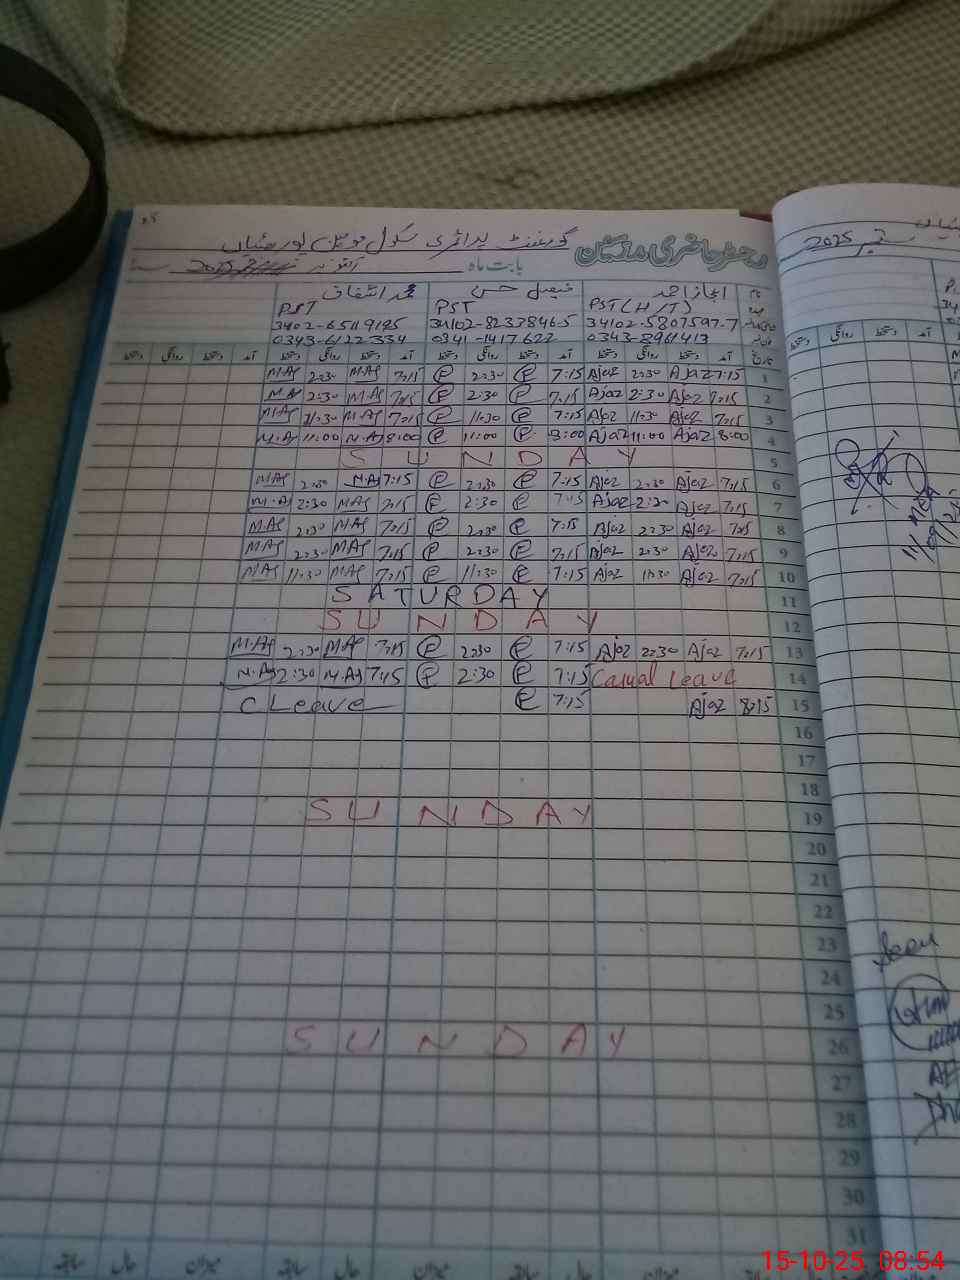 رجسٹر حاضری مدرسین گورنمنٹ پرائمری سکول
بابت ماہ اکتوبر 2025
اعجاز احمد فیصل حسن محمد اشفاق
PST PST PST (H/T)
0343-6122334 0341-1417622 0343-8961413
آمد دستخط روانگی دستخط آمد دستخط روانگی دستخط آمد دستخط روانگی دستخط آمد دستخط روانگی دستخط
M.Af 2:30 M.Af 7:15 @ 2:30 @ 7:15 Ajaz 2:30 Ajaz 7:15 1
M.Af 2:30 M.Af 7:15 @ 2:30 @ 7:15 Ajaz 2:30 Ajaz 7:15 2
M.Af 11:30 M.Af 7:15 @ 11:30 @ 7:15 Ajaz 11:30 Ajaz 7:15 3
M.Af 11:00 M.Af 8:00 @ 11:00 @ 8:00 Ajaz 11:00 Ajaz 8:00 4
SUNDAY 5
M.Af 2:30 M.Af 7:15 @ 2:30 @ 7:15 Ajaz 2:30 Ajaz 7:15 6
M.Af 2:30 M.Af 7:15 @ 2:30 @ 7:15 Ajaz 2:30 Ajaz 7:15 7
M.Af 2:30 M.Af 7:15 @ 2:30 @ 7:15 Ajaz 2:30 Ajaz 7:15 8
M.Af 2:30 M.Af 7:15 @ 2:30 @ 7:15 Ajaz 2:30 Ajaz 7:15 9
M.Af 11:30 M.Af 7:15 @ 11:30 @ 7:15 Ajaz 11:30 Ajaz 7:15 10
SATURDAY 11
SUNDAY 12
M.Af 2:30 M.Af 7:15 @ 2:30 @ 7:15 Ajaz 2:30 Ajaz 7:15 13
M.Af 2:30 M.Af 7:15 @ 2:30 @ 7:15 Casual Leave 14
C Leave @ 7:15 Ajaz 8:15 15
16
17
18
SUNDAY 19
20
21
22
23
24
25
SUNDAY 26
27
28
29
30
31
سابقہ حال میزان سابقہ حال میزان سابقہ حال میزان
ستمبر 2025
Seen
15-10-25 08:54